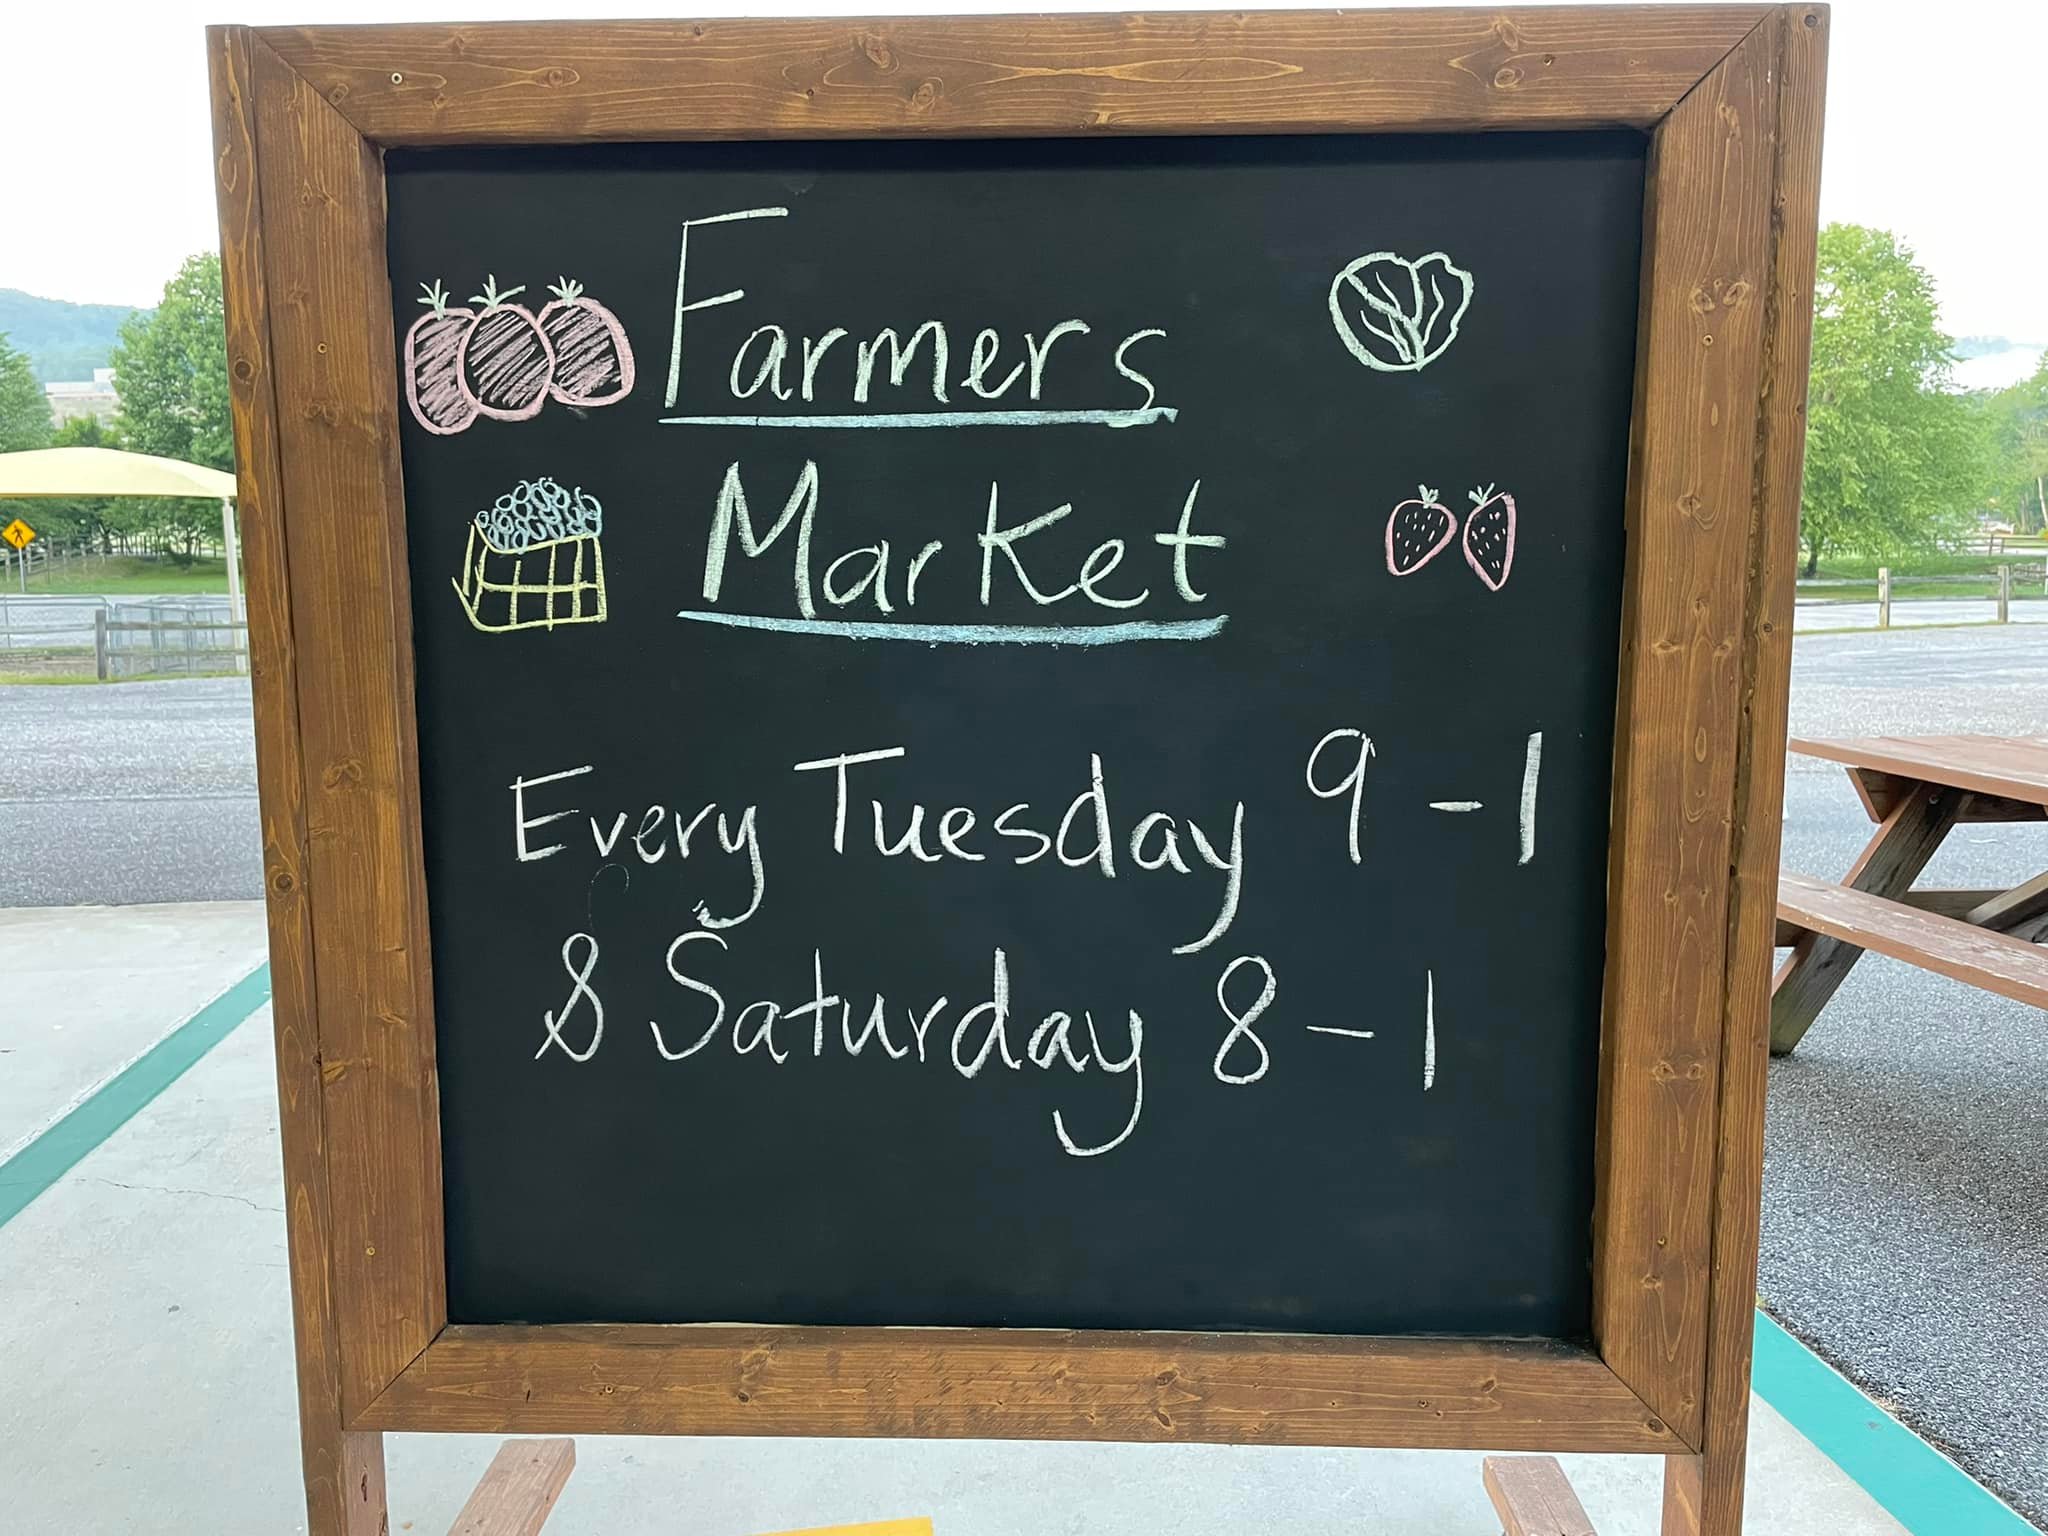 Farmers
Market
Every Tuesday 9-1
& Saturday 8-1